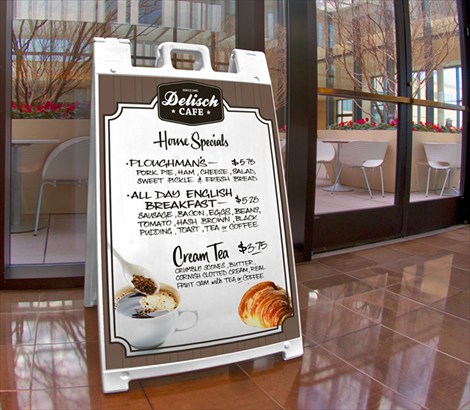 SINCE 1991
Delisch
★ CAFE ★
Home Specials
• PLOUGHMAN'S — $5.75
PORK PIE, HAM, CHEESE, SALAD,
SWEET PICKLE & FRESH BREAD
• ALL DAY ENGLISH
BREAKFAST — $5.25
SAUSAGE, BACON, EGGS, BEANS,
TOMATO, HASH BROWN, BLACK
PUDDING, TOAST, TEA or COFFEE
Cream Tea $3.75
CRUMBLE SCONES, BUTTER,
CORNISH CLOTTED CREAM, REAL
FRUIT JAM with TEA or COFFEE